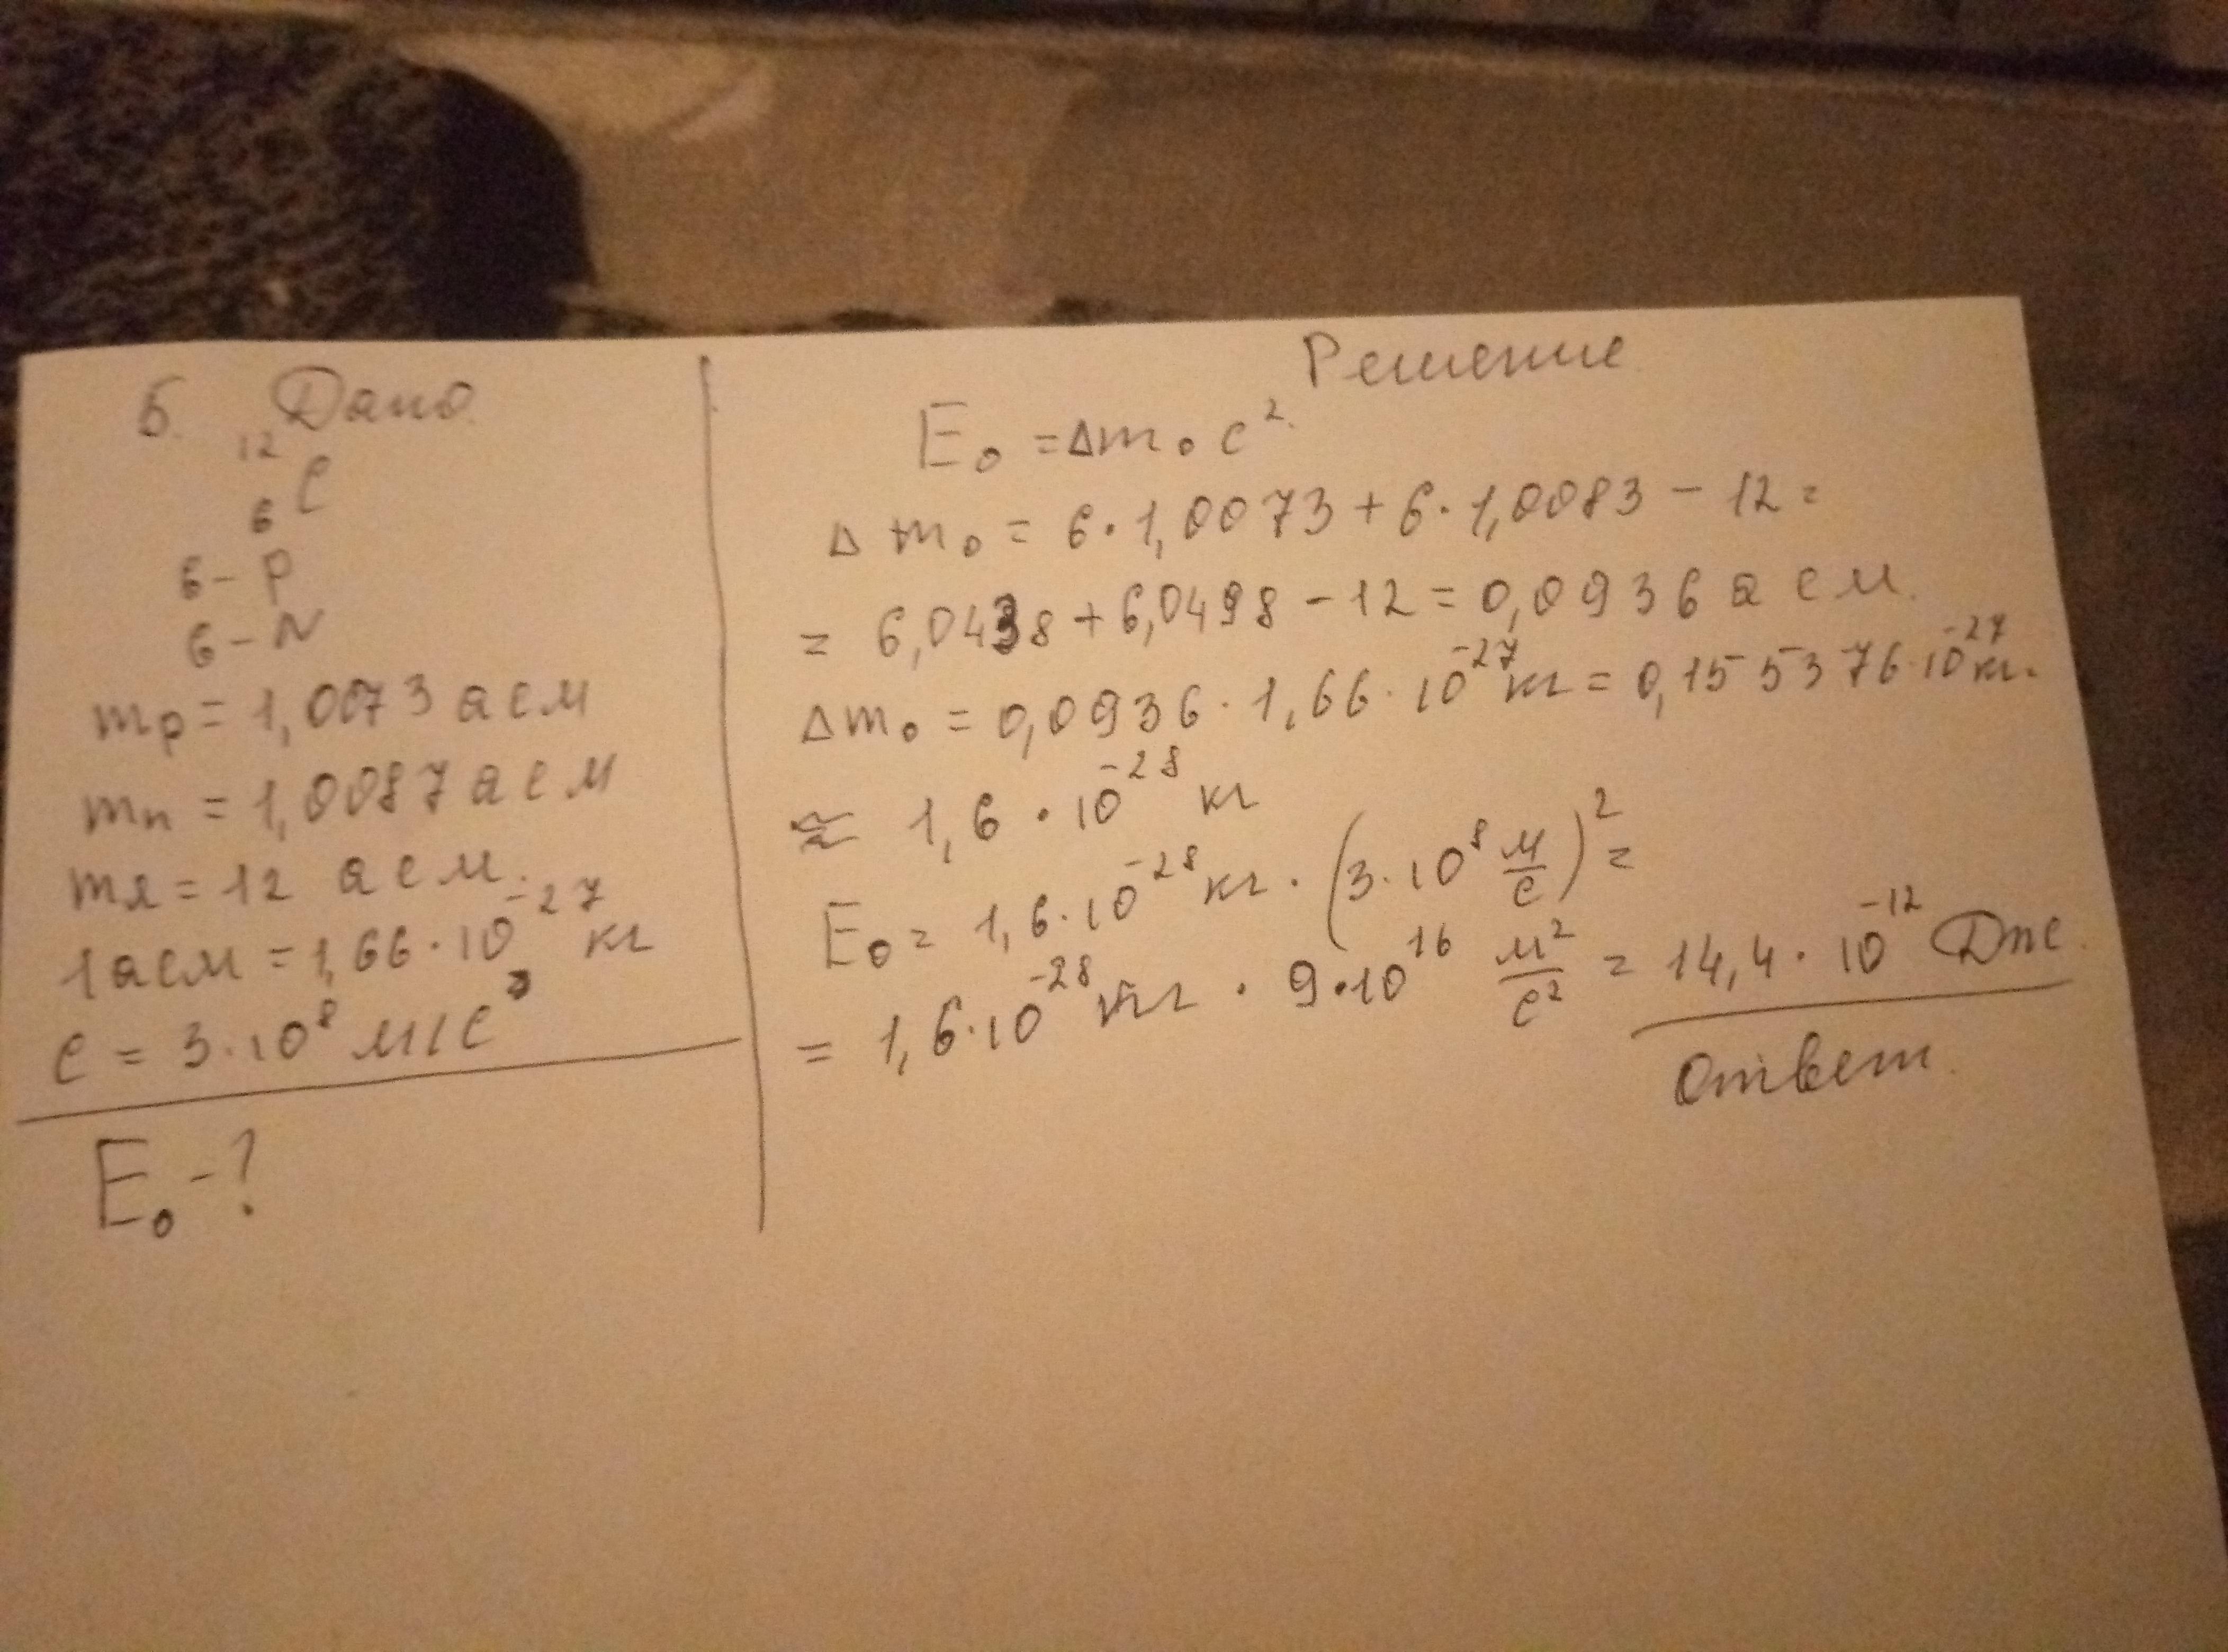 5. Дано
12
6 C
6 - p
6 - N
mp = 1,0073 а е м
mn = 1,0087 а е м
mя = 12 а е м.
1 а е м = 1,66 · 10^-27 кг
c = 3 · 10^8 м/с
E₀ - ?
Решение
E₀ = Δm₀ c².
Δm₀ = 6 · 1,0073 + 6 · 1,0083 - 12 =
= 6,0438 + 6,0498 - 12 = 0,0936 а е м.
Δm₀ = 0,0936 · 1,66 · 10^-27 кг = 0,155376 · 10^-27 кг.
≈ 1,6 · 10^-28 кг
E₀ = 1,6 · 10^-28 кг · (3 · 10^8 м/с)² =
= 1,6 · 10^-28 кг · 9 · 10^16 м²/с² = 14,4 · 10^-12 Дж.
Ответ.